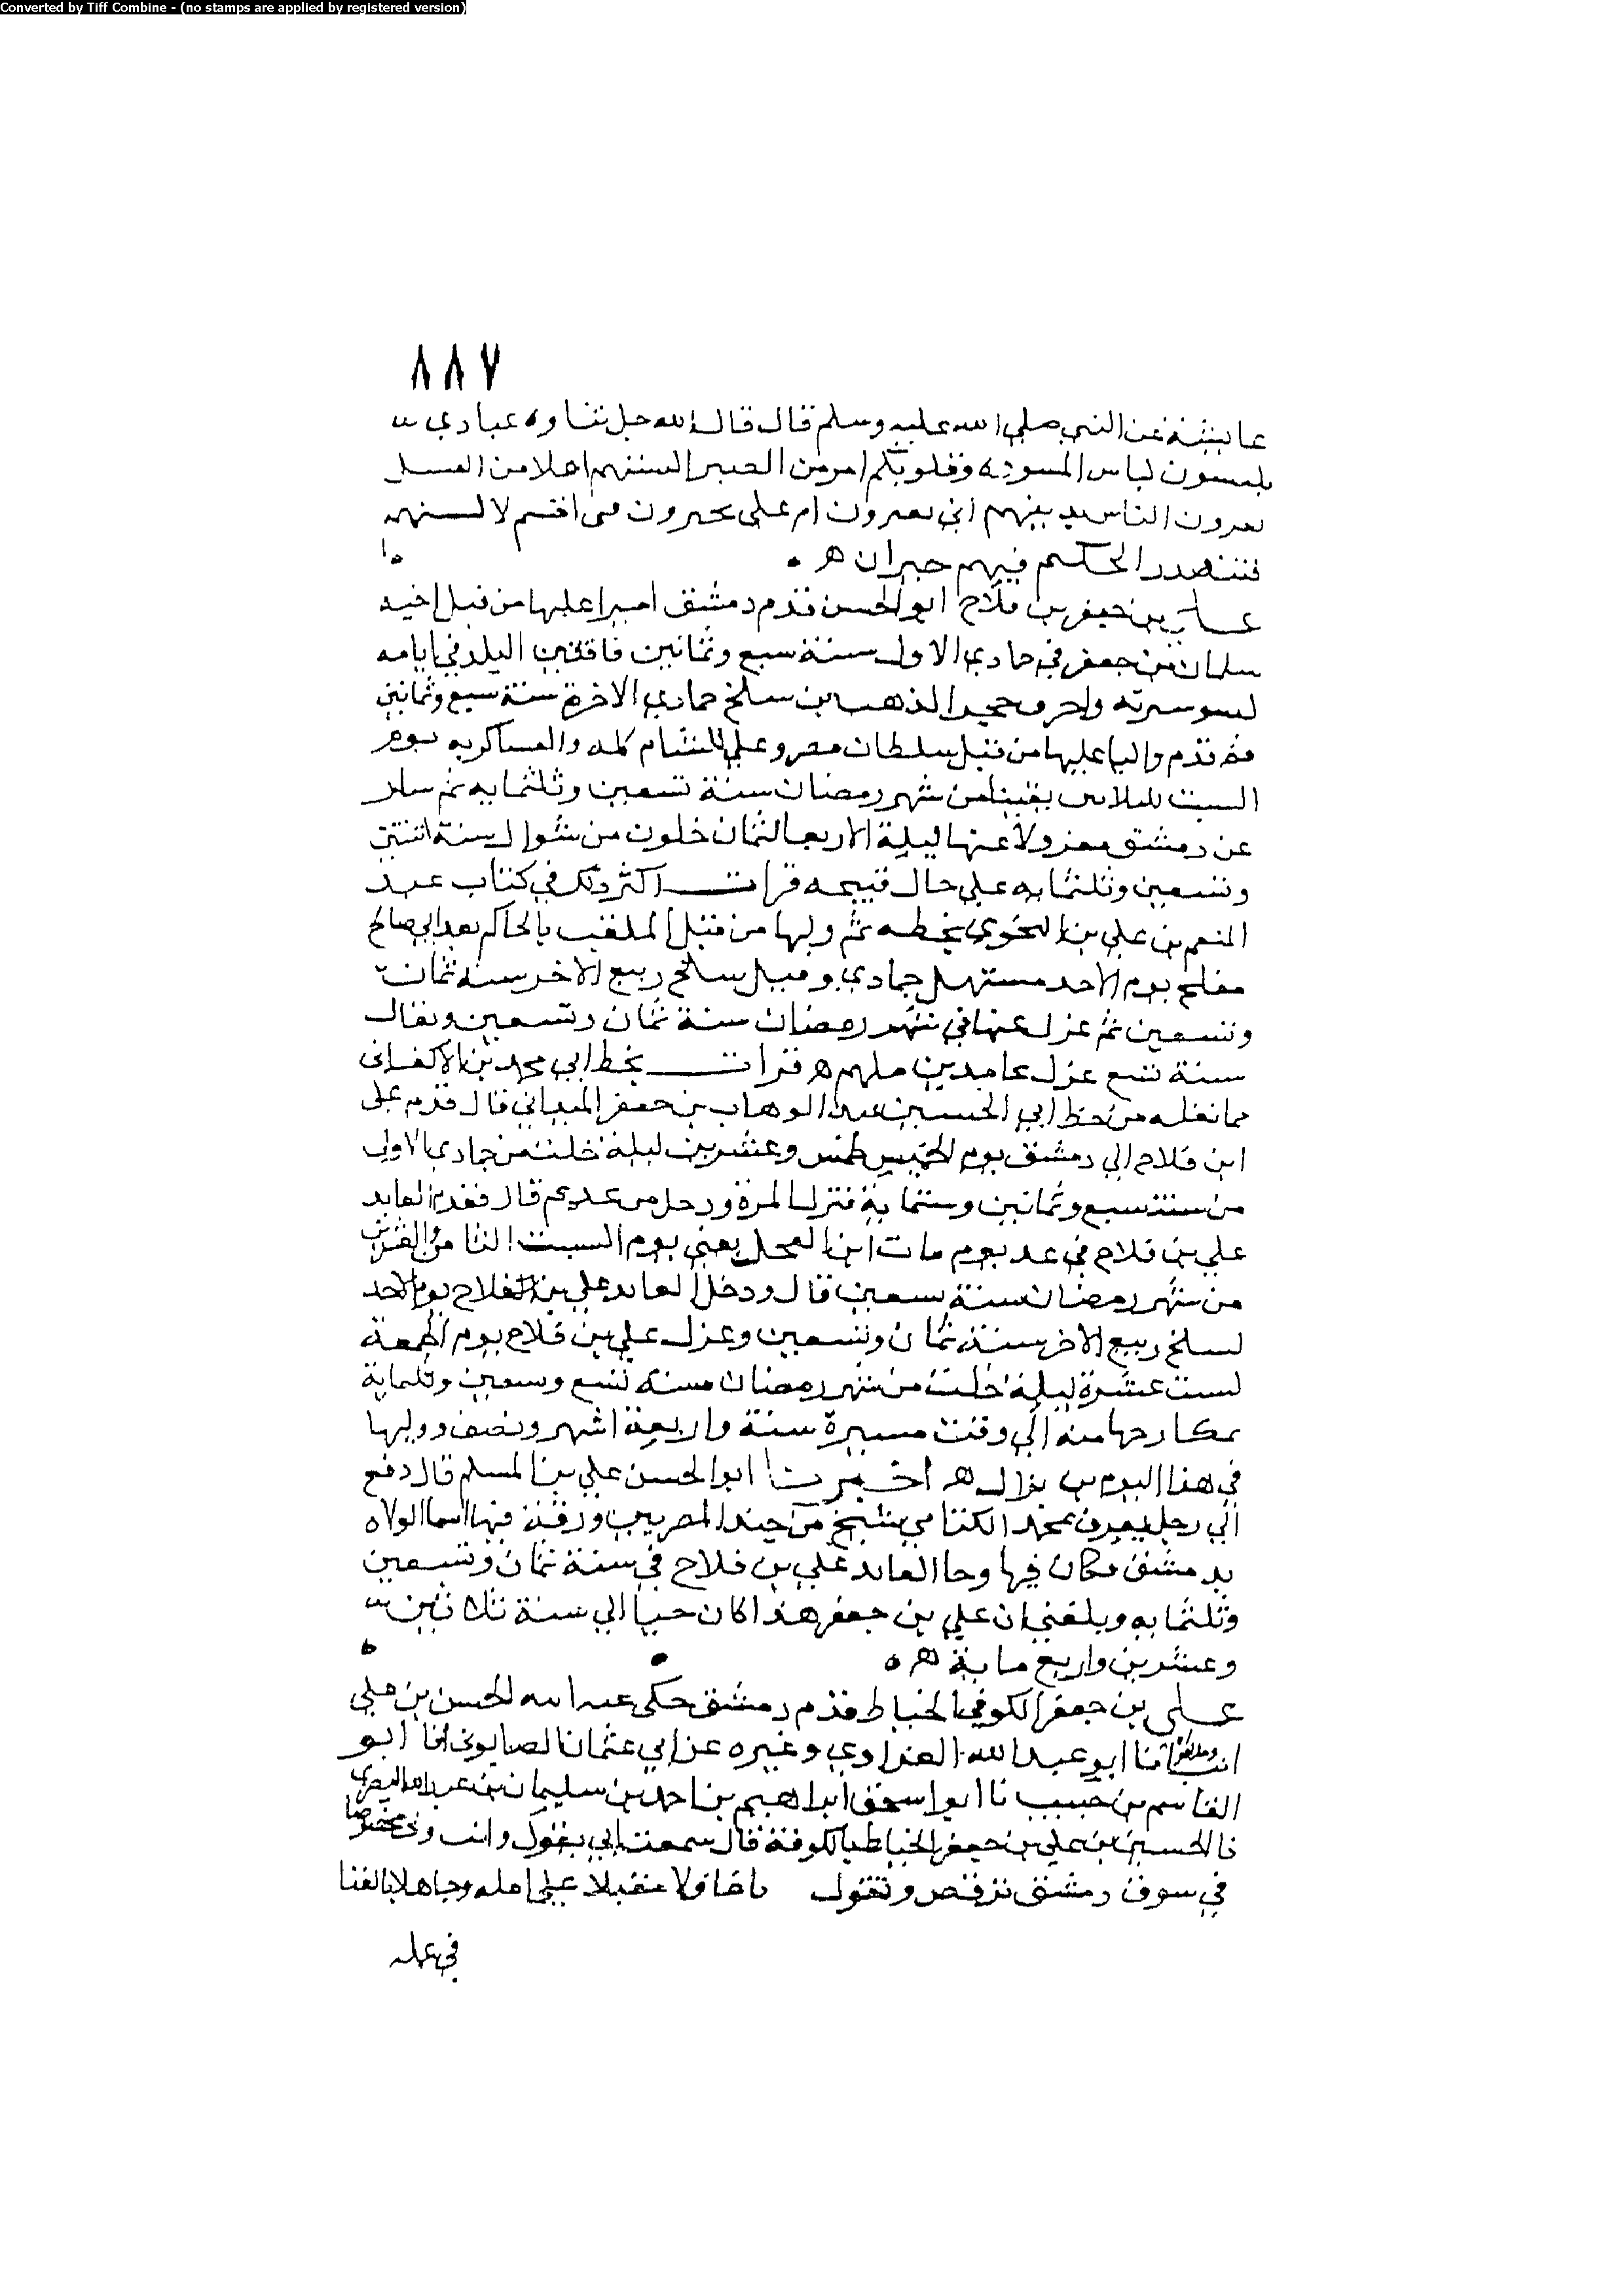 Converted by Tiff Combine - (no stamps are applied by registered version)
٨٨٧
عايشة عن النبي صلي الله عليه وسلم قال قال الله جل ثناوه عبادي
يلبسون لباس المسوك وقلوبكم امر من الصبر السنتهم احلا من العسل
الناس بدينهم ابي ام علي اقسم لا
الحكم فيهم حيران ه
علي بن جعفر بن فلاح ابو الحسن قدم دمشق اميرا عليها من قبل اخيه
سلمان بن جعفر في جمادي الاول سنة سبع وثمانين البلد في ايامه
لسو سيرته واحرق حجر الذهب بن سلخ جمادي الاخرة سنة سبع وثمانين
قدم واليا عليها من قبل سلطان مصر وعلي الشام كله والعساكر به يوم
السبت لثلاث بقين من شهر رمضان سنة تسعين وثلثمايه ثم سار
عن دمشق معزولا عنها ليلة الاربعا لثمان خلون من شوال سنة اثنتين
وتسعين وثلثمايه علي حال قبيحه قرات اكثر ذلك في كتاب عبد
المنعم بن علي بن النحوي بخطه ثم وليها من قبل الملقب بالحاكم بعد ابي صالح
مفلح يوم الاحد مستهل جمادي وقيل سلخ ربيع الاخر سنه ثمان
وتسعين ثم عزل عنها في شهر رمضان سنة ثمان وتسعين ويقال
سنة تسع عزل حامد بن ملهم ه قرات بخط ابي محمد بن الاكفاني
مما نقله من خط ابي الحسين عبد الوهاب بن جعفر الميداني قال قدم علي
ابن فلاح الي دمشق يوم الخميس لخمس وعشرين ليلة خلت من جمادي الاولي
من سنة سبع وثمانين وستماية فنزل المزة ورحل من غد يوم قال فقدم العابد
علي بن فلاح في غد يوم مات ابن الفحل يعني يوم السبت الثامن والعشرين
من شهر رمضان سنة تسعين قال ودخل العابد علي بن الفلاح يوم الاحد
لسلخ ربيع الاخر سنة ثمان وتسعين وعزل علي بن فلاح يوم الجمعة
لست عشرة ليلة خلت من شهر رمضان سنة تسع وتسعين وثلماية
منه الي وقت مسيرة سنة واربعة اشهر ونصف ووليها
في هذا اليوم بن بزال ه اخبرنا ابو الحسن علي بن المسلم قال دفع
الي رجل يعرف بمحمد الكتامي شيخ من جند المصريين ورقة فيها اسما الولاه
بدمشق فكان فيها وجا العابد علي بن فلاح في سنة ثمان وتسعين
وثلثمايه وبلغني ان علي بن جعفر هذا كان حيا الي سنة ثلاث
وعشرين واربع ماية ه
علي بن جعفر الكوفي الخياط قدم دمشق حكي عنه ابنه الحسن بن علي
انا ابو عبد الله الفراوي وغيره عن ابي عثمان الصابوني انا ابو
القاسم بن حبيب نا ابو اسحق ابراهيم بن احمد بن سليمان بن عبد الله البصري
نا الحسين بن علي بن جعفر الخياط بالكوفة قال سمعت ابي يقول
في سوق دمشق ترقص وتقول يا غافلا مقبلا علي امله وجاهلا بالفنا
في عمله